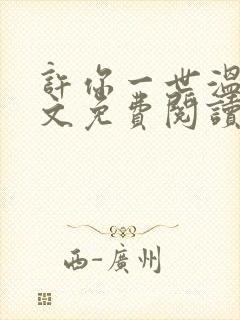 許你一世溫
文免費閱讀
西-廣州